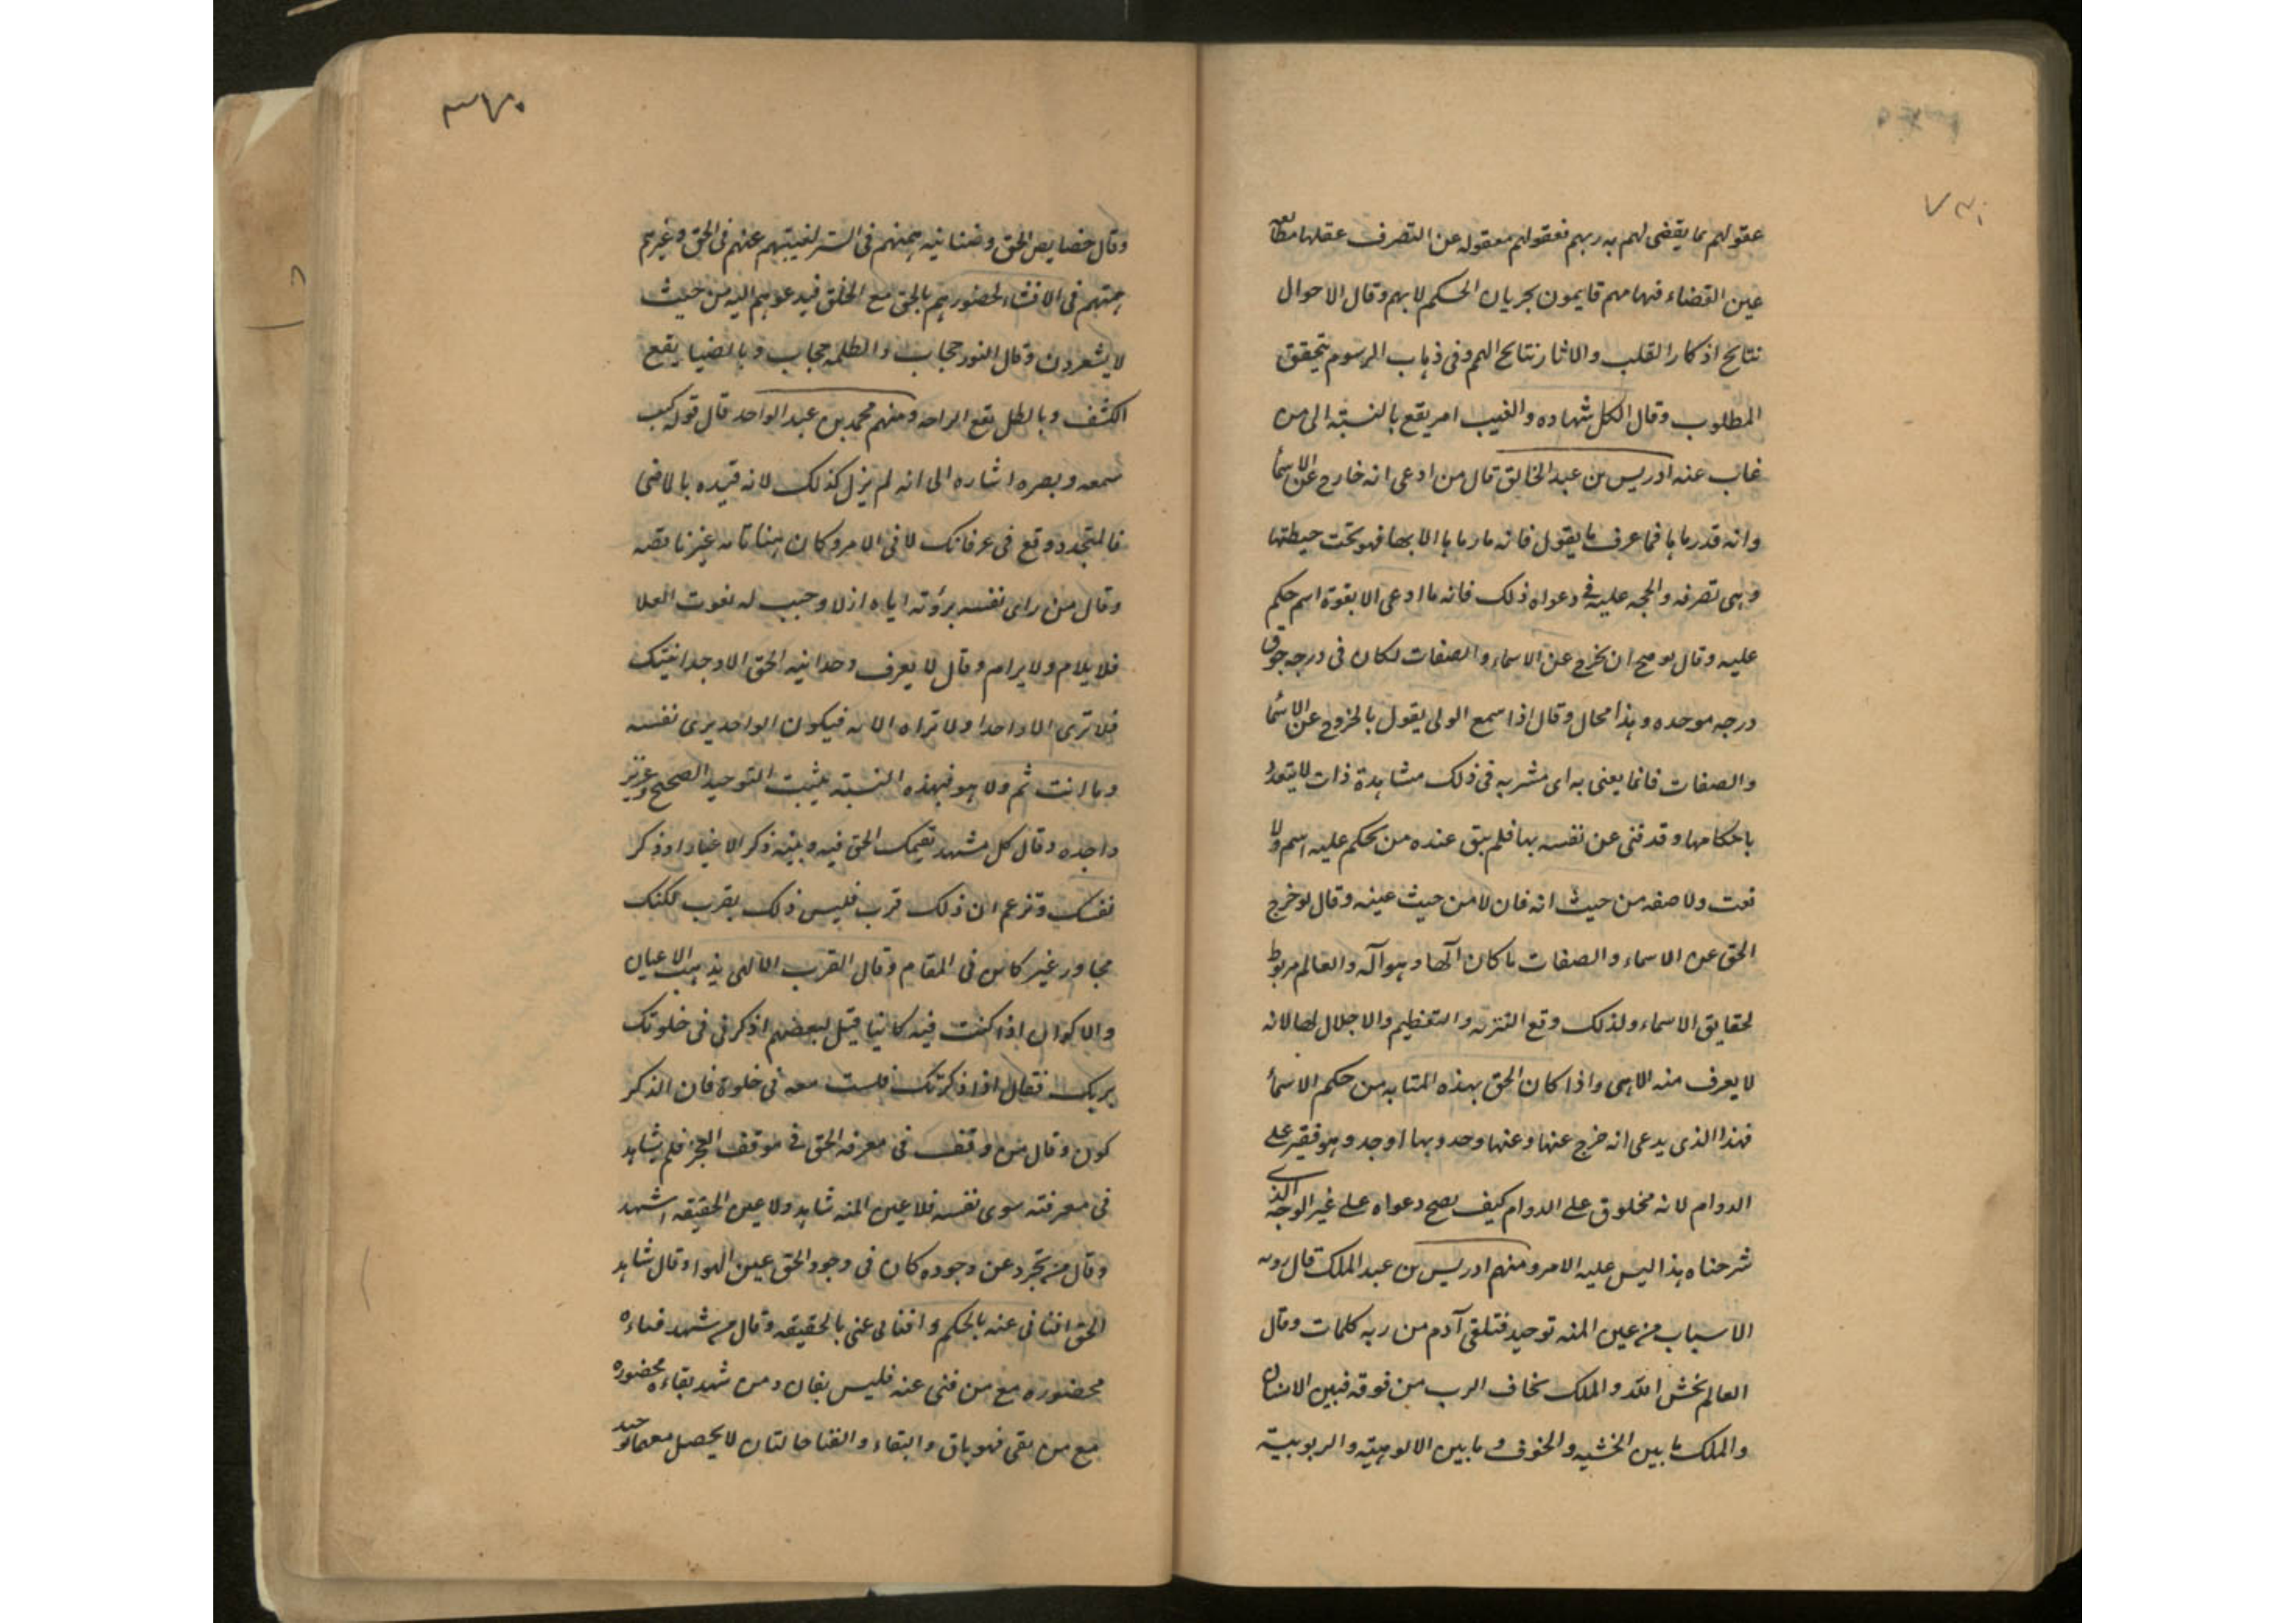 عقولهم بما يقضى لهم به ربهم فعقولهم معقوله عن التصرف عقلها مطالعه
عين القضاء فهامهم قايمون بجريان الحكم لا بهم وقال الاحوال
نتايج اذكار القلب والاثار نتايج الهم وفى ذهاب الرسوم يتحقق
المطلوب وقال الكل شهاده والغيب امر يقع بالنسبة الى من
غاب عنه ادريس بن عبد الخالق قال من ادعى انه خارج عن الاسما
وانه قد رما بها فما عرف ما يقول فانه ما رما بها الا بها فهو تحت حيطتها
وهى تصرفه والحجه عليه فى دعواه ذلك فانه ما ادعى الا بقوة اسم حكم
عليه وقال لو صح ان يخرج عن الاسماء والصفات لكان فى درجه فوق
درجه موحده وهذا محال وقال اذا سمع الولى يقول بالخروج عن الاسما
والصفات فانما يعنى به اى مشربه فى ذلك مشاهدة ذات لا يتعدد
باحكامها وقد فنى عن نفسه بها فلم يبق عنده من يحكم عليه اسم ولا
نعت ولا صفه من حيث انه فان لا من حيث عينه وقال لو خرج
الحق عن الاسماء والصفات ما كان آلها وهو آله والعالم مربوط
لحقايق الاسماء ولذلك وقع التنزيه والتعظيم والاجلال لها لانه
لا يعرف منه الا هى واذا كان الحق بهذه المثابه من حكم الاسما
فهذا الذى يدعى انه خرج عنها وعنها وحد وبها اوجد وهو فقير على
الدوام لانه مخلوق على الدوام كيف يصح دعواه على غير الوجه الذى
شرحناه هذا ليس عليه الامر ومنهم ادريس بن عبد الملك قال رويه
الاسباب من عين المنه توحيد فتلقى آدم من ربه كلمات وقال
العالم يخش الله والملك يخاف الرب من فوقه فبين الانسان
والملك ما بين الخشيه والخوف وما بين الالوهيته والربوبية
٣٧٠
وقال خصايص الحق وضناينه همهم فى الستر لغيبتهم عنهم فى الحق وغيرهم
همتهم فى الافشاء لحضورهم بالحق مع الخلق فيدعوهم اليه من حيث
لا يشعرون وقال النور حجاب والظلمه حجاب وبالضيا يقع
الكشف وبالظل يقع الراحه ومنهم محمد بن عبد الواحد قال قوله كنت
سمعه وبصره اشاره الى انه لم يزل كذلك لانه قيده بالماضى
فالمتجدد وقع فى عرفانك لا فى الامر وكان هنا تامه غير ناقصه
وقال من راى نفسه برؤته اياه ازلا وجبب له نعوت العلا
فلا يلام ولا يرام وقال لا يعرف وحدانيه الحق الا وحدانيتك
فلا ترى الا واحدا ولا تراه الا به فيكون الواحد يرى نفسه
وما انت ثم ولا هو فبهذه النسبة يثبت التوحيد الصحيح وعزيز
واجده وقال كل مشهد يقيمك الحق فيه وبقيه ذكر الاغيار او ذكر
نفسك وتزعم ان ذلك قرب فليس ذلك بقرب لكنك
مجاور غير كاين فى المقام وقال القرب الالهى يذهب الاعيان
والاكوان اذا كنت فيه كانيا قيل لبعضهم اذكرنى فى خلوتك
بربك فقال اذا ذكرتك فلست معه فى خلوة فان الذكر
كون وقال من وقف فى معرفه الحق فى موقف العجز فلم يشاهد
فى معرفته سوى نفسه فلا عين المنه شاهد ولا عين الحقيقه اشهد
وقال من تجرد عن وجوده كان فى وجود الحق عين الهوا وقال شاهد
الحق افنانى عنه بالحكم وافنانى عنى بالحقيقه وقال من شهد فناءه
بحضوره مع من فنى عنه فليس بفان ومن شهد بقاءه بحضوره
مع من بقى فهو باق والبقاء والفنا حالتان لا يحصل معهما توحيد